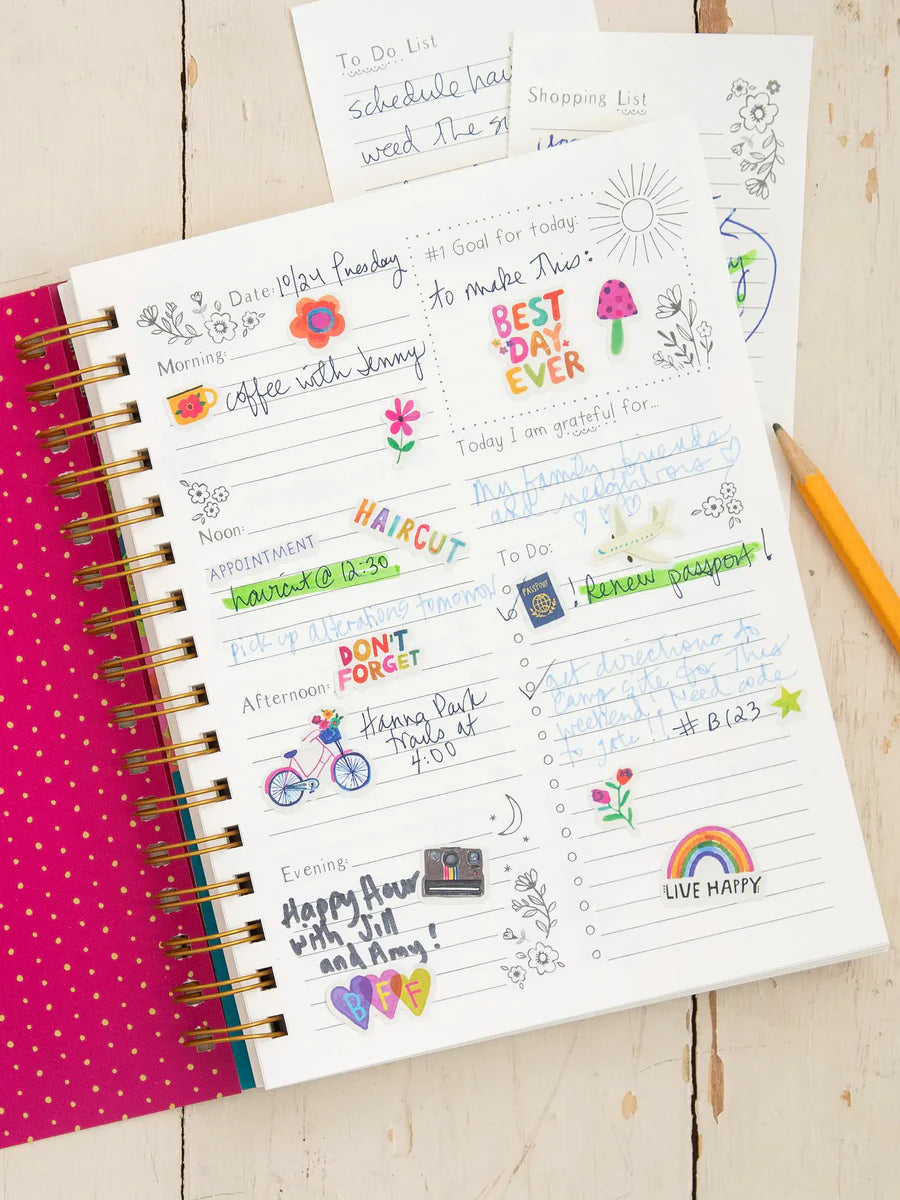 To Do List
schedule
weed the
Shopping List
Date: 10/24 Tuesday
Morning:
coffee with Jenny
Noon:
APPOINTMENT
HAIRCUT
haircut @ 12:30
pick up alterations tomorrow
DON'T
FORGET
Afternoon:
Hanna Park
trails at
4:00
Evening:
Happy Hour
with Jill
and Amy!
BFF
#1 Goal for today:
to make this:
BEST
DAY
EVER
Today I am grateful for...
My family, friends
and neighbors
To Do:
PASSPORT
! Renew passport!
get directions to
camp site for this
weekend. Need code
to gate!! # B123
LIVE HAPPY